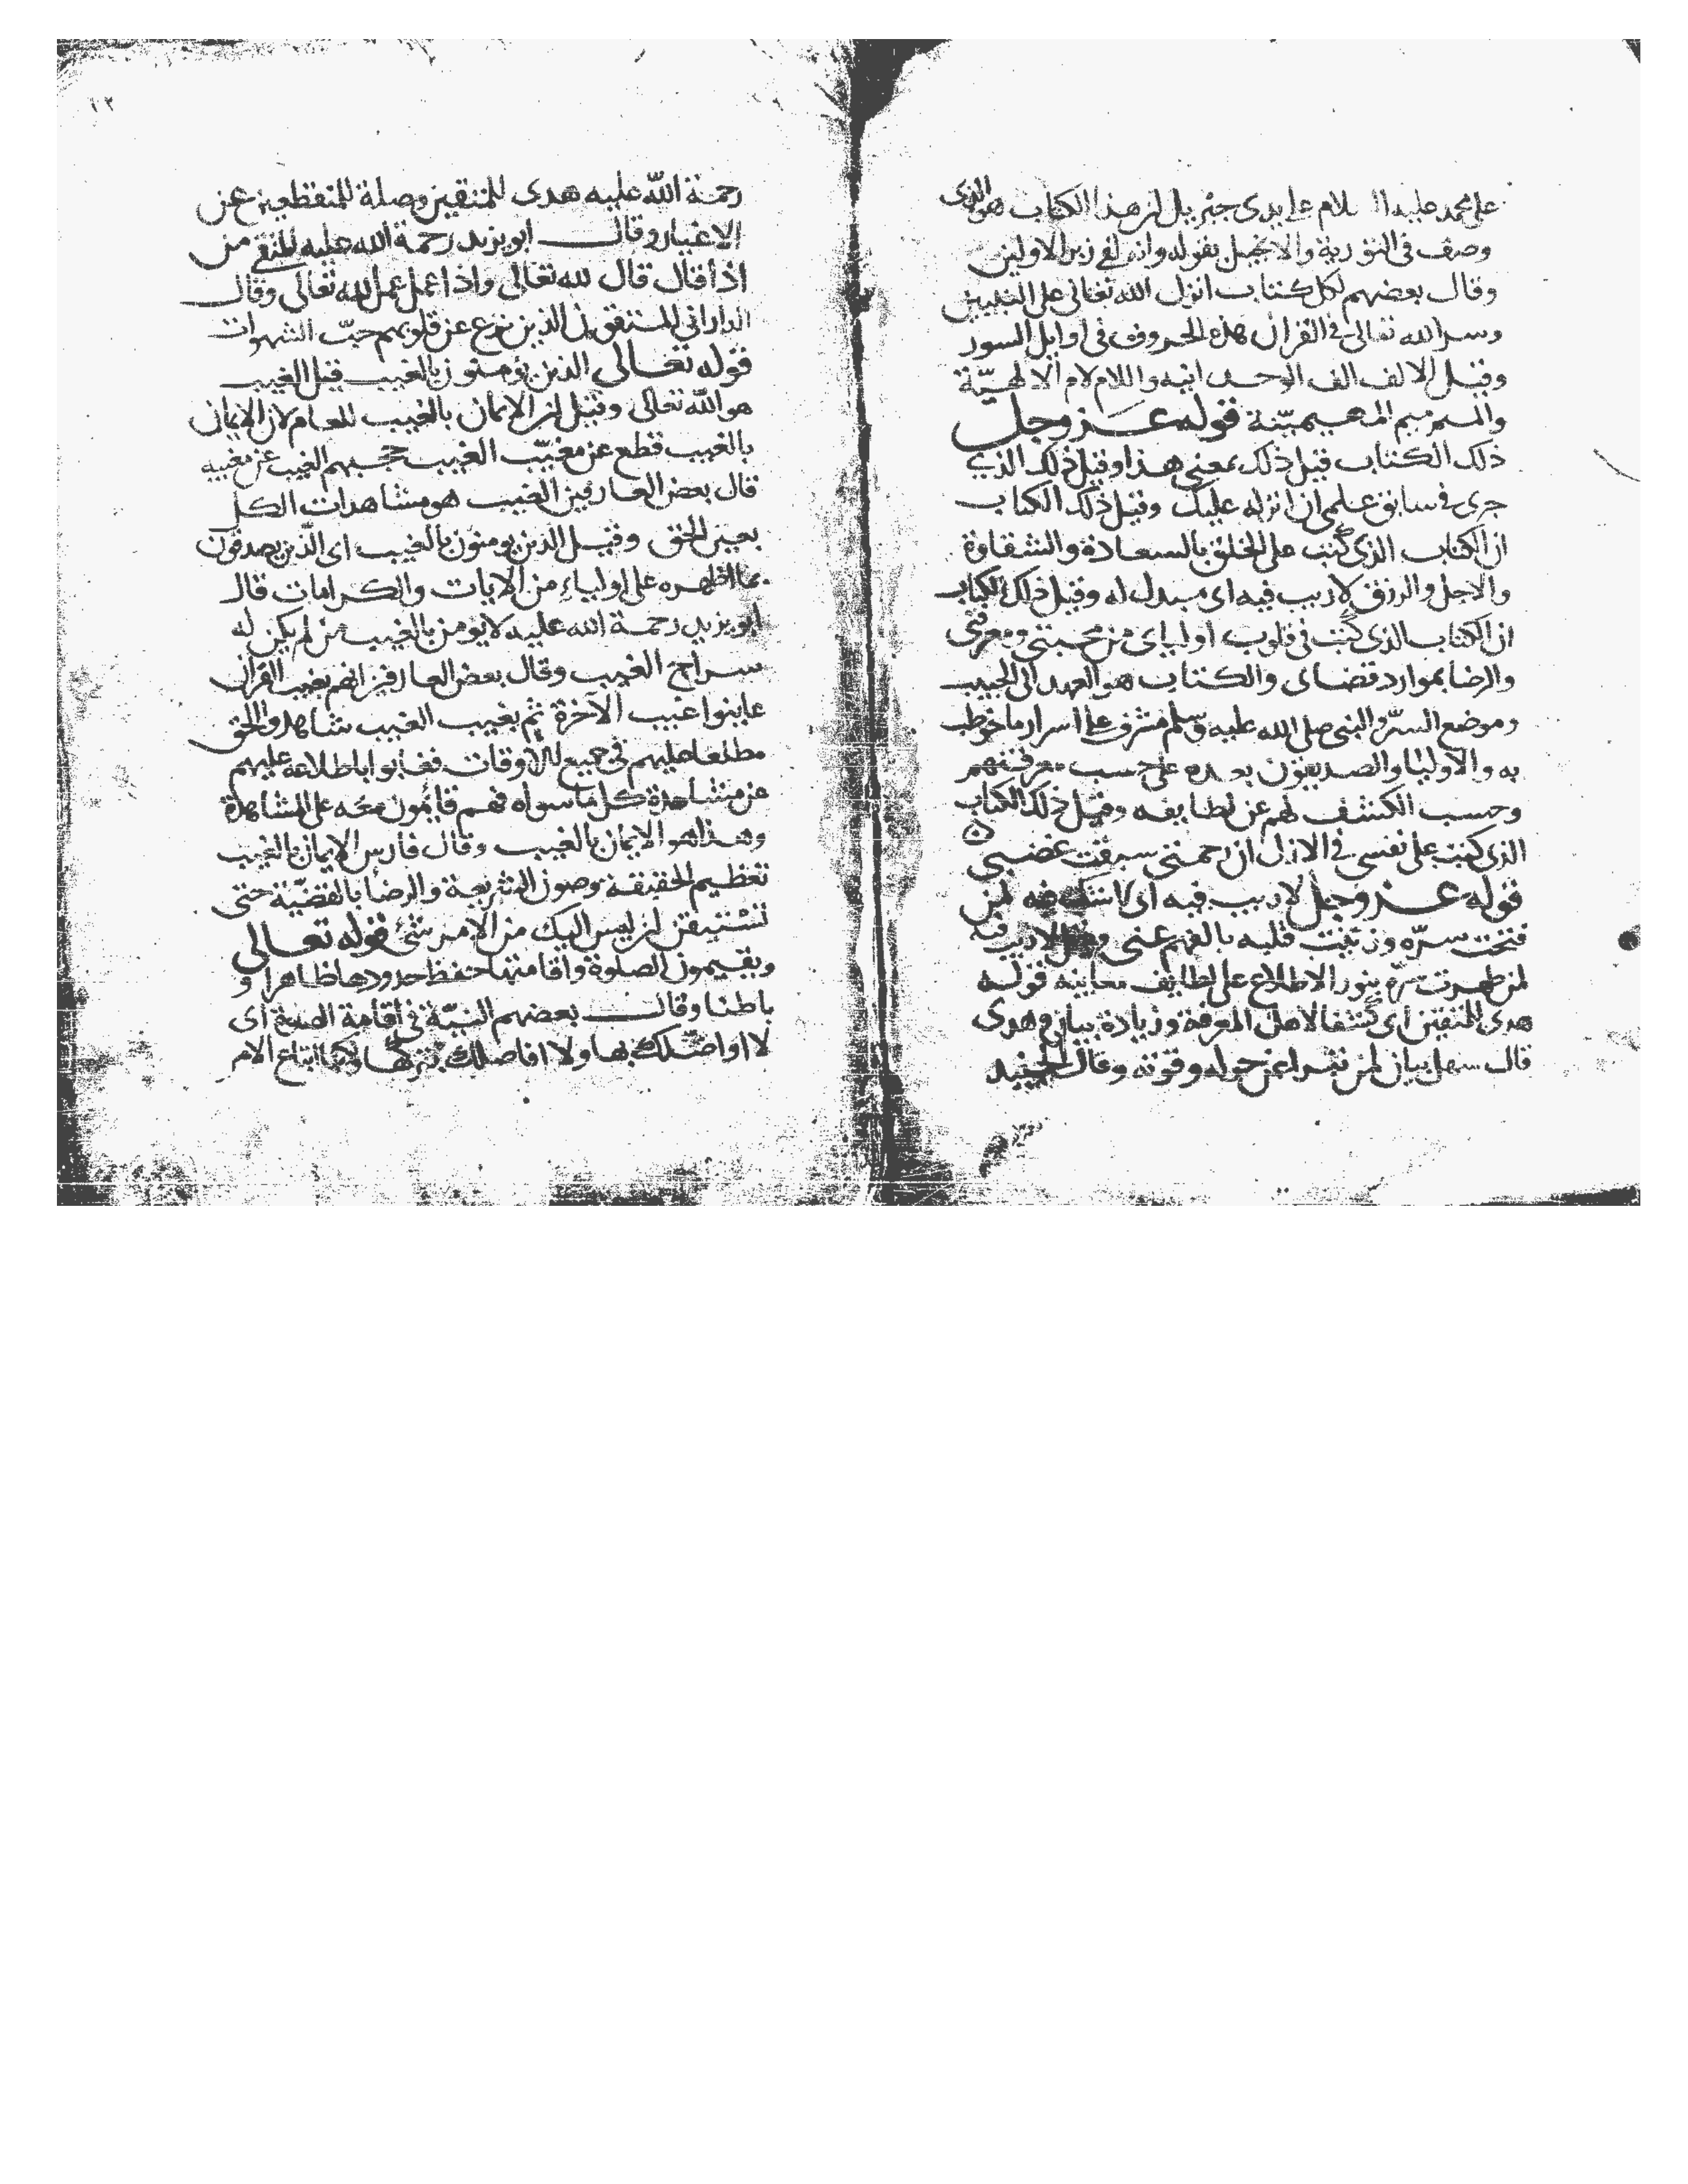 على محمد عليه السلام على يدى جبريل ان هذا الكتاب هو الذى
وصف فى التورية والانجيل بقوله وانه لفى زبر الاولين
وقال بعضهم لكل كتاب انزل الله تعالى على النبيين
وسر الله تعالى فى القران هذه الحروف فى اوايل السور
وقيل الالف الف الوحدانية واللام لام الالهيّة
والميم ميم المهيمنيّة قوله عز وجل
ذلك الكتاب قيل ذلك بمعنى هذا وقيل ذلك الذى
جرى فى سابق علمى ان انزله عليك وقيل ذلك الكتاب
ان الكتاب الذى كتبت على الخلق بالسعادة والشقاوة
والاجل والرزق لاريب فيه اى مبدل له وقيل ذلك الكتاب
ان الكتاب الذى كتبت فى قلوب اوليآى من محبتى ومعرفتى
والرضا بموارد قضاى والكتاب هو العهد الى الحبيب
وموضع السرّ والنبى صلى الله عليه وسلم مشرف على اسرار ما خوطب
به والاوليا والصديقون بعده على حسب معرفتهم
وحسب الكشف لهم عن لطايفه وقيل ذلك الكتاب
الذى كتبت على نفسى فى الازل ان رحمتى سبقت غضبى
قوله عز وجل لاريب فيه اى لا شك فيه لمن
فتحت سرّه وزينت قلبه بالفهم عنى وقيل لاريب فيه
لمن طهرت سرّه بنور الاطلاع على لطايف معانيه قوله
هدى للمتقين اى كشفا لاهل المعرفة وزيادة بيان وهدى
قال سهل بيان لمن تبرا عن حوله وقوته وقال الجنيد
١٢
رحمة الله عليه هدى للمتقين وصلة للمنقطعين عن
الاغيار وقال ابو يزيد رحمة الله عليه المتقى من
اذا قال قال لله تعالى واذا عمل عمل لله تعالى وقال
الدارانى المتقون الذين نزع عن قلوبهم حبّ الشهوات
قوله تعالى الذين يؤمنون بالغيب قيل الغيب
هو الله تعالى وقيل ان الايمان بالغيب للعام لان الايمان
بالغيب قطع عن مغيّب الغيب حجبهم الغيب عن مغيبه
قال بعض العارفين الغيب هو مشاهدات الكل
بعين الحق وقيل الذين يومنون بالغيب اى الّذين يصدقون
بما اظهره على اولياء من الايات والكرامات قال
ابو يزيد رحمة الله عليه لا يومن بالغيب من لم يكن له
سراج الغيب وقال بعض العارفين انهم بغيب القران
عاينوا غيب الآخرة ثم بغيب الغيب شاهدوا الحق
مطلعا عليهم فى جميع الاوقات فغابوا باطلاعه عليهم
عن مشاهدة كل ما سواه فهم قايمون معه على المشاهدة
وهذا هو الايمان بالغيب وقال فارس الايمان بالغيب
تعظيم الحقيقة وصون الشريعة والرضا بالقضيّة حتى
تستيقن ان ليس اليك من الامر شئ قوله تعالى
ويقيمون الصلوة واقامتها حفظ حدودها ظاهرا و
باطنا وقال بعضهم النيّة فى اقامة الصلوة اى
لا اواصلك بها ولا افاصلك بتركها وانما اتباع الامر